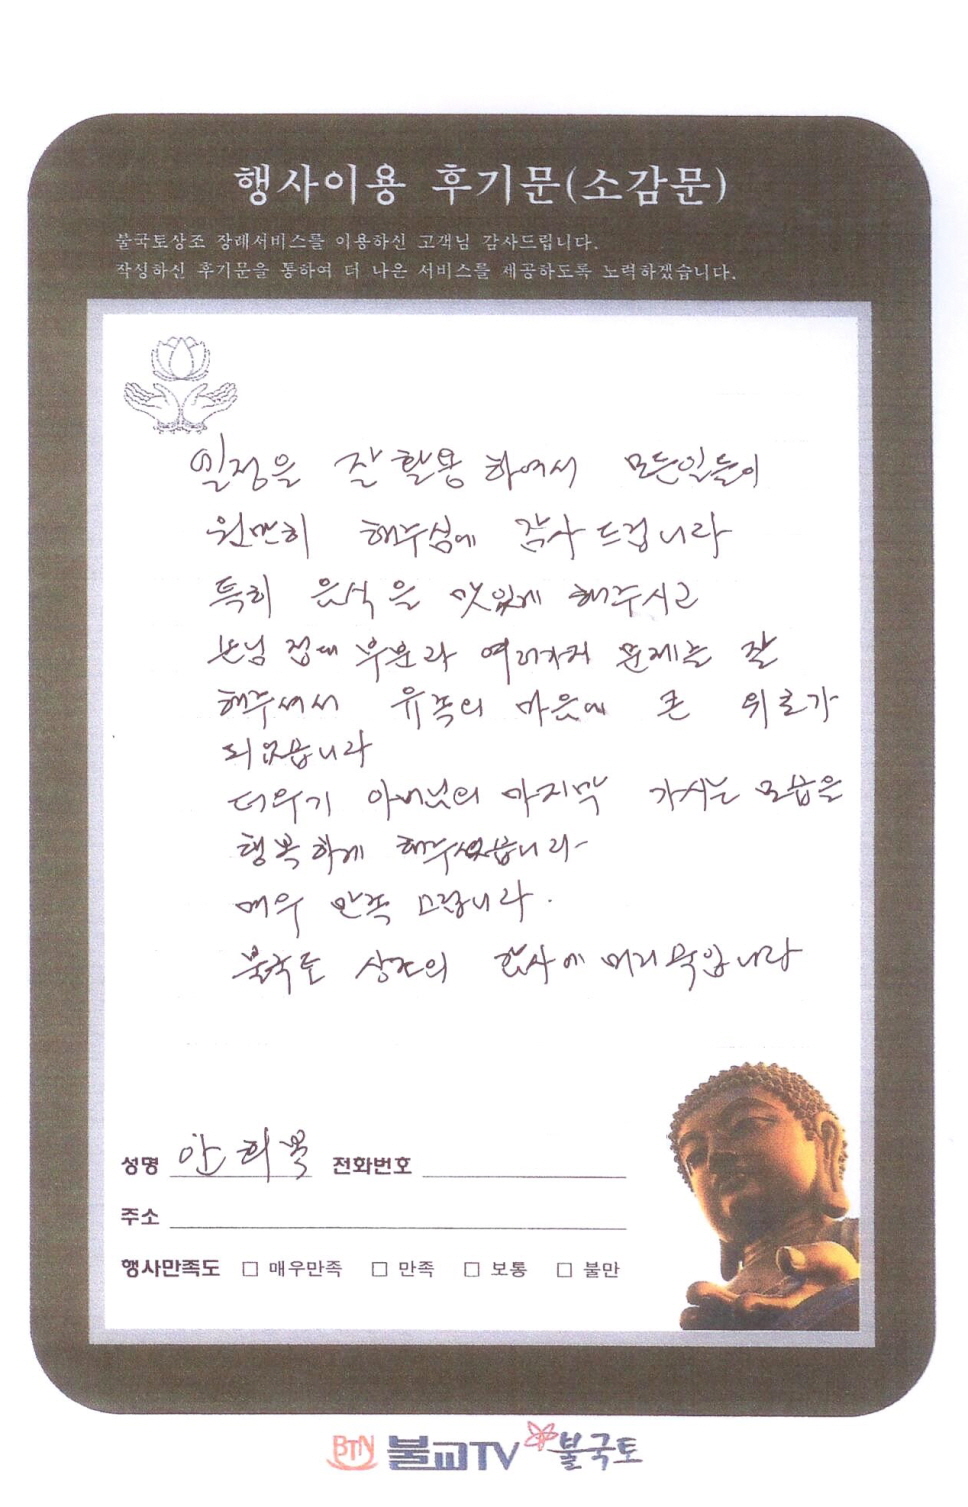 행사이용 후기문(소감문)
불국토상조 장례서비스를 이용하신 고객님 감사드립니다.
작성하신 후기문을 통하여 더 나은 서비스를 제공하도록 노력하겠습니다.
일정을 잘 활용 하여서 모든일들이
원만히 해주심에 감사 드립니다
특히 음식을 맛있게 해주시고
손님 접대 부분과 여러가지 문제를 잘
해주셔서 유족의 마음에 큰 위로가
되었습니다
더우기 아버님의 마지막 가시는 모습을
행복하게 해주셨습니다
매우 만족 드립니다.
불국토 상조의 행사에 머리숙입니다
성명 안희복 전화번호
주소
행사만족도 □ 매우만족 □ 만족 □ 보통 □ 불만
BTN 불교TV 불국토